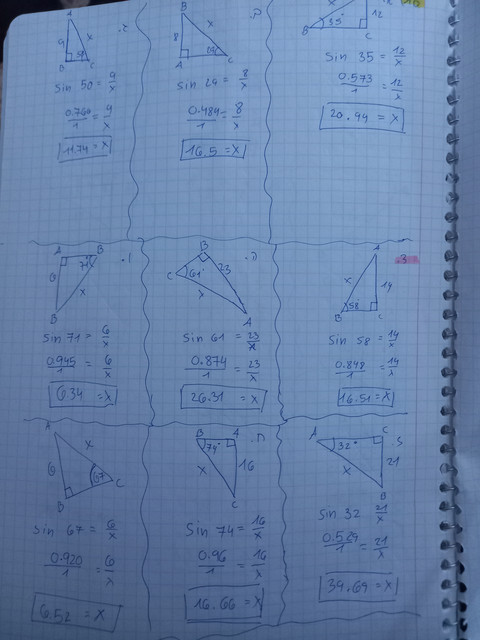 A
.ל
9
x
50
B
C
sin 50 = 9/x
0.766/1 = 9/x
11.74 = x
B
.ק
8
x
29
A
C
sin 29 = 8/x
0.484/1 = 8/x
16.5 = x
x
12
35°
B
C
sin 35 = 12/x
0.573/1 = 12/x
20.94 = x
A
B
.ו
71°
6
x
B
sin 71 = 6/x
0.945/1 = 6/x
6.34 = x
B
23
C
61°
x
A
sin 61 = 23/x
0.874/1 = 23/x
26.31 = x
A
.3
x
14
58
B
C
sin 58 = 14/x
0.848/1 = 14/x
16.51 = x
A
x
6
67
B
C
sin 67 = 6/x
0.920/1 = 6/x
6.52 = x
B
A
.ח
74°
x
16
C
sin 74 = 16/x
0.96/1 = 16/x
16.66 = x
A
C
32°
21
x
B
sin 32 21/x
0.529/1 = 21/x
39.69 = x